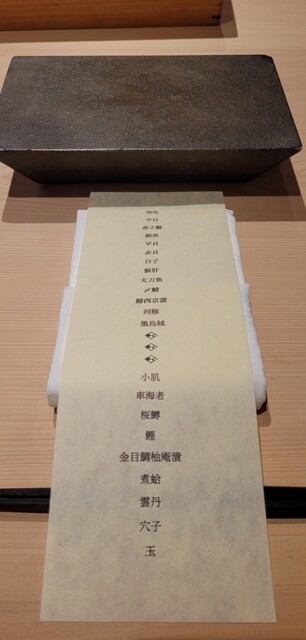 平目
春子鯛
平貝
赤貝
白子
鮟肝
太刀魚
〆鯖
鰆西京漬
河豚
墨烏賊
小肌
車海老
桜鱒
鰹
金目鯛柚庵漬
煮蛤
雲丹
穴子
玉